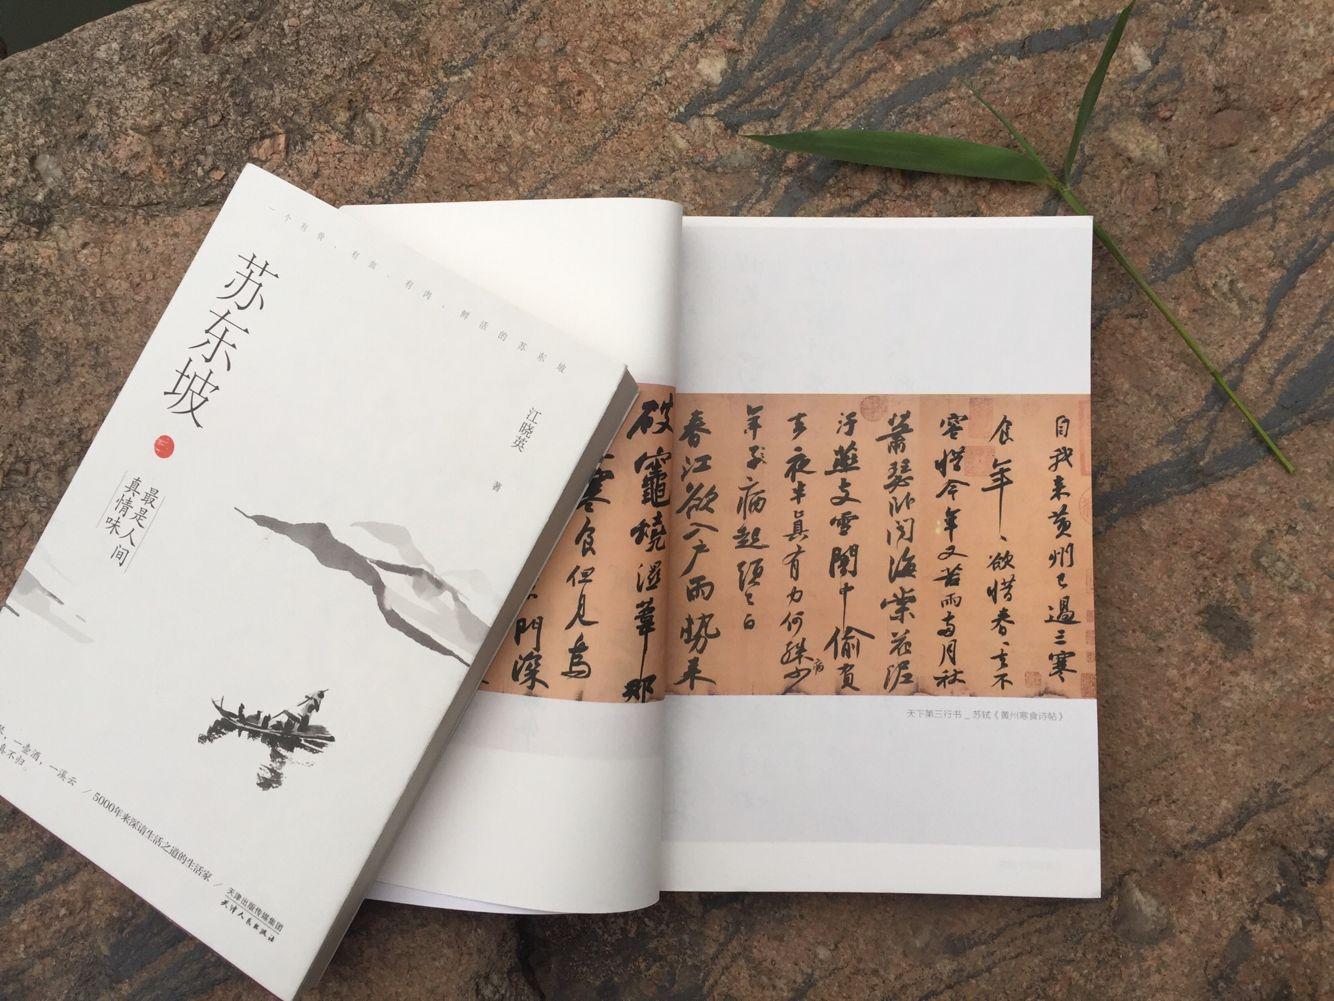 一个有骨、有血、有肉、鲜活的苏东坡
苏东坡
最是人间
真情味
江晓英 著
一壶酒，一溪云
不归。
/ 5000年来深谙生活之道的生活家 /
天津出版传媒集团
天津人民出版社
自我来黄州已过三寒
食年丶欲惜春丶去不
容惜今年又苦雨两月秋
萧瑟卧闻海棠花泥
污燕支雪闇中偷负
去夜半真有力何殊少
年子病起头已白
春江欲入户雨势来
破竈烧湿苇那
寒食但见乌
门深
天下第三行书 _ 苏轼《黄州寒食诗帖》